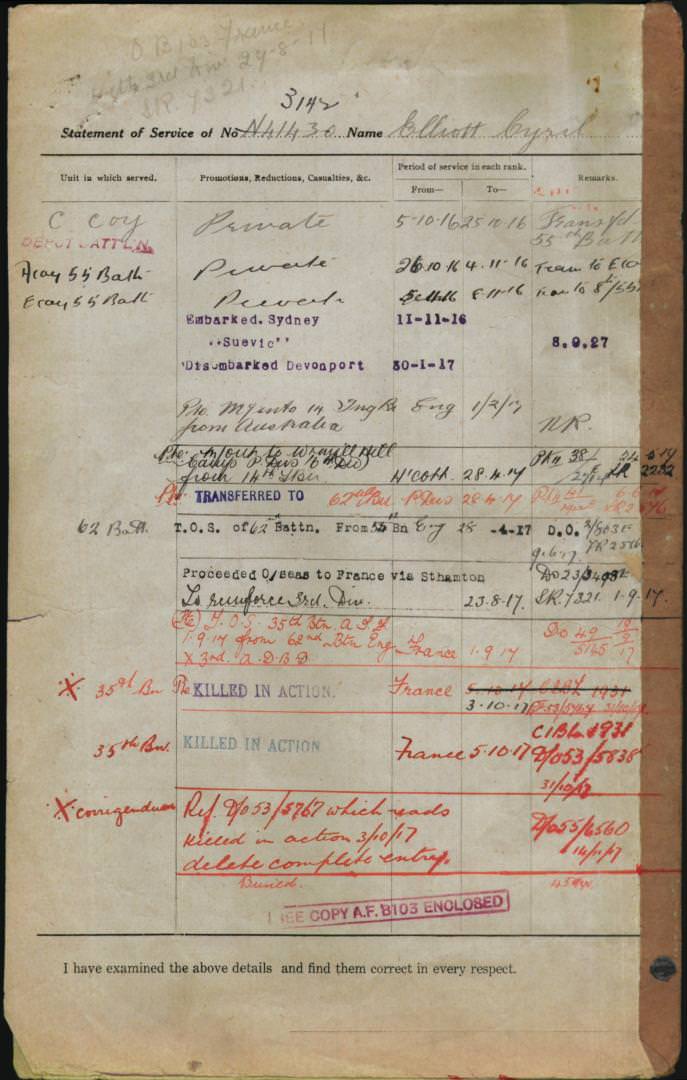 O B103 France
with 3rd Div 29-8-17
SR. 7321.
3142
Statement of Service of No N41430 Name Elliott Cyril
Unit in which served. Promotions, Reductions, Casualties, &c. Period of service in each rank. Remarks.
From— To—
C Coy Private 5-10-16 25-10-16 Transf'd
DEPOT BATTL'N. 55th Batt
A coy 55 Batt Private 26-10-16 4-11-16 Tran to E Coy
E coy 55 Batt Private 5-11-16 8-11-16 Tran to 8th/55th
Embarked. Sydney 11-11-16
"Suevic" 8.0.27
Disembarked Devonport 30-1-17
Pte. M/into 14 Tng Bn Eng 1/2/17
from Australia NR.
Pte. M/out to Windmill Hill
Camp P. Dus
from 14th H'cott. 28.4.17
Pte. TRANSFERRED TO 62nd Bn. P. Dus 28-4-17
62 Batt. T.O.S. of 62nd Battn. From Bn Eng 28 -4-17 D.O.
9-6-17.
Proceeded O/seas to France via Sthamton
To reinforce 3rd. Div. 23.8.17. SR.7321. 1-9-17.
(Pte) T.O.S. 35th Btn. A.I.F.
1.9.17 from 62nd Btn Eng. France 1.9.17 DO 49
X 3rd. A.D.B.D. 5165
X 35th Bn Pte KILLED IN ACTION. France 5-10-17 CIBL 1931
3-10-17
35th Bn. KILLED IN ACTION France 5.10.17 CIBL 1931
D/o53/5838
31/10/17
X corrigendum Ref. D/o53/5767 which reads
killed in action 3/10/17 D/o55/6560
delete complete entry. 14/11/17
Buried.
SEE COPY A.F. B103 ENCLOSED
I have examined the above details and find them correct in every respect.